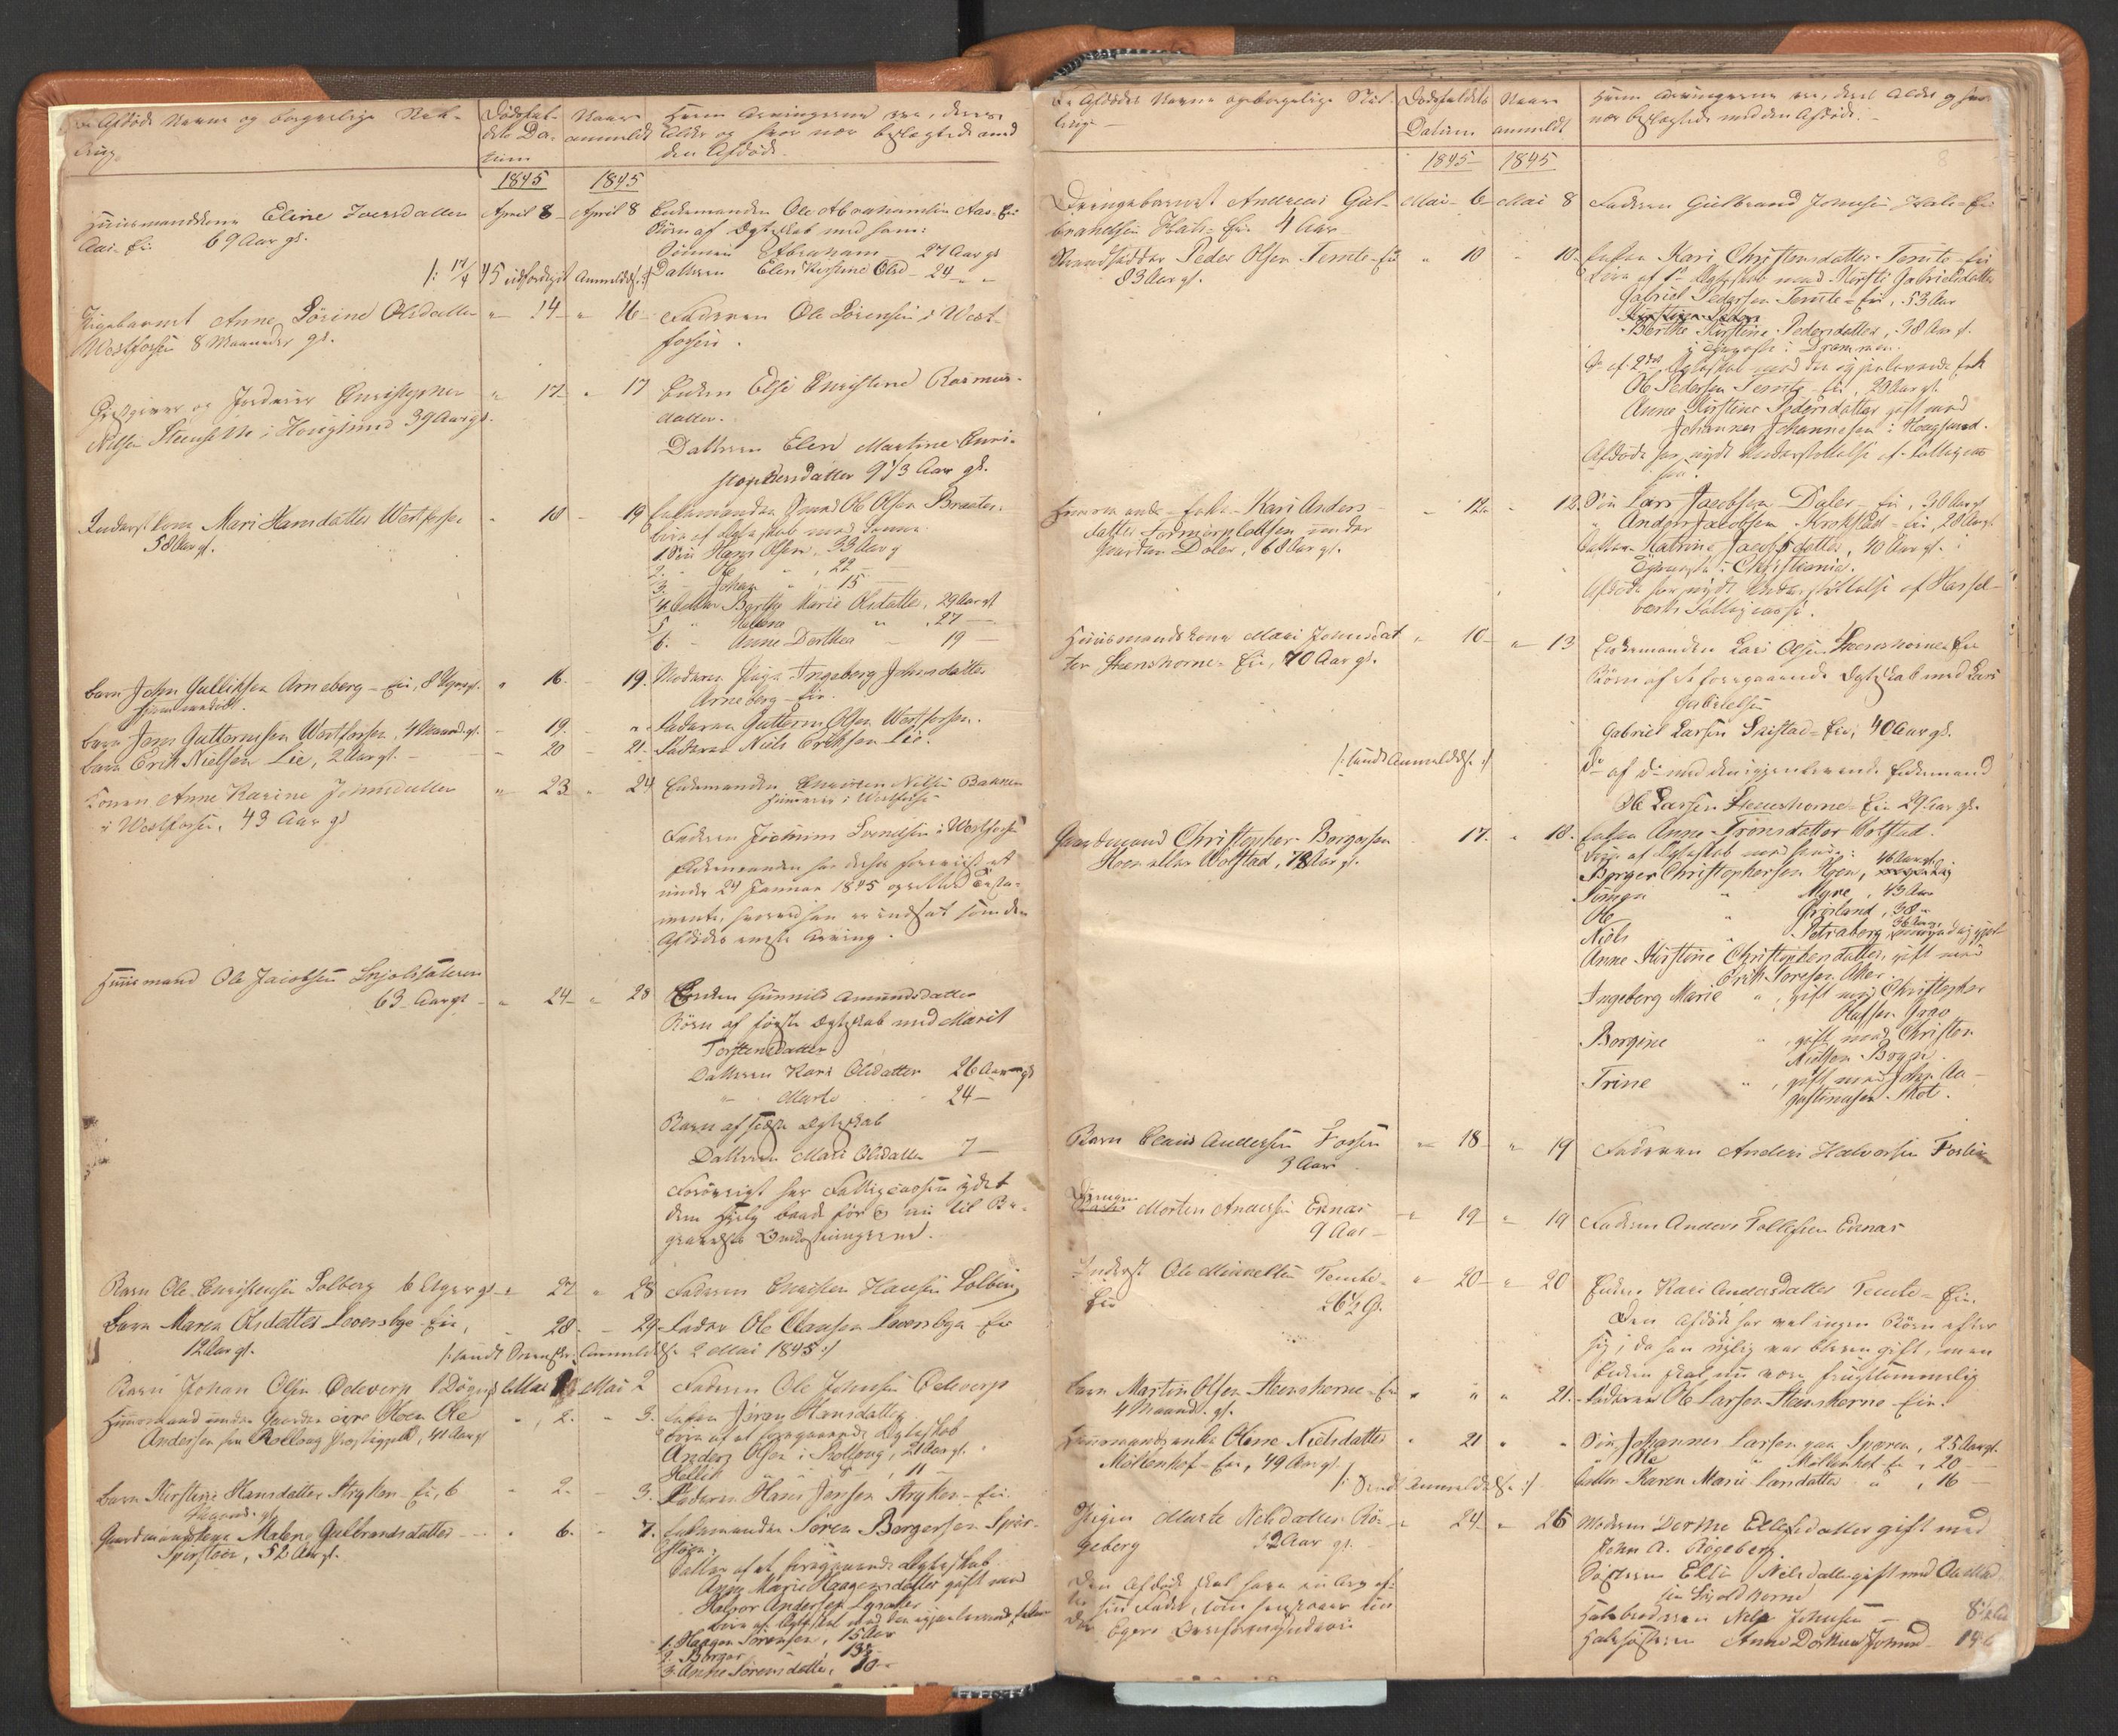 De Afdødes Navne og borgerlige Stil-
ling.
Dødsfal-
dets Da-
tum
Naar
anmeldt
Hvem Arvingerne ere, deres
Alder og hvor nær beslægtede med
den Afdøde.
1845
1845
Huusmandskone Eline Iversdatter
Aas-Eie 69 Aar gl.
April 8
April 8
Enkemanden Ole Abrahamsen Aas-Eie
Børn af Ægteskab med ham:
Sønnen Abraham 27 Aar gl
Datteren Elen Kirstine Olsd 24 "
/: 17/4 45 udfærdiget Anmeldelse :/
Pigebarnet Anne Sørine Olsdatter
Westfossen 8 Maaneder gl.
" 14 " 16
Faderen Ole Sørensen i West-
fossen.
Gjestgiver og Jordeier Christopher
Nilsen Steensette i Hougsund 39 Aar gl.
" 17 " 17
Enken Else Christine Rasmus-
datter.
Datteren Elen Martine Chri-
stophersdatter 9 1/3 Aar gl.
Inderst Kone Mari Hansdatter Westfossen
58 Aar gl.
" 18 - 19
Enkemanden Ole Olsen Braaten.
Børn af Ægteskab med denne
1 Søn Hans Olsen, 33 Aar g
2. Ole " , 22 —
3. Johan " , 15 —
4. Datter Berthe Marie Olsdatter, 29 Aar gl
5 " Helene " , 27 —
6. - Anne Dorthea — 19 —
Barn John Gulliksen Arneberg-Eie, 8 Uger gl.
" 16. - 19.
Moderen Pige Ingeborg Johnsdatter
Arneberg-Eie.
Barn Jens Guttormsen Westfossen, 4 Maand. gl.
- 19. - "
Faderen Guttorm Olsen Westfossen.
Barn Erik Nielsen Lie, 2 Aar gl.
- 20 - 21.
Faderen Niels Eriksen Lie.
Konen Anne Karine Johnsdatter
i Westfossen, 43 Aar gl
" 23 " 24
Enkemanden Christen Nilsen Bakken
Huuseier i Westfossen
Faderen Jochum Svendsen i Westfossen
Enkemanden har derhos foreviist et
under 24 Januar 1845 oprettet Testa-
mente, hvorved han er indsat som den
Afdødes eneste Arving.
Huusmand Ole Jacobsen
63 Aar gl
- " 24 " 28
Enken Gunnild Amundsdatter
Børn af første Ægteskab med Marit
Torstensdatter
Datteren Kari Olsdatter 26 Aar gl
" Marte " 24 —
Barn af sidste Ægteskab
Datteren Mari Olsdatter 7 —
Forøvrigt har Fattigcassen ydet
dem Hjelp baade før og nu til Be-
gravelses Omkostningerne.
Barn Ole Christensen Solberg 6 Uger gl
" 27 " 28
Faderen Christen Hansen Solberg
Barn Maren Olsdatter Lovensbye-Eie,
12 Aar gl.
- 28. - 29.
Fader Ole Clausen Lovensbye-Eie
/: sendt Anmeldelse 2 Mai 1845 :/
Barn Johan Olsen Odeverp, 1 Døgn gl
Mai 1 Mai 2
Faderen Ole Johnsen Odeverp
Huusmand under Gaarden øvre Hoen Ole
Andersen fra Rolloug Præstegjeld, 41 Aar gl
", 2. " 3.
Enken Jøran Hansdatter
Børn af et foregaaende Ægteskab
Anders Olsen i Rolloug, 21 Aar gl.
Kittil " " , 11 —
Barn Kirstine Hansdatter Stryken-Eie, 6
Maaned. gl.
" 2. - 3.
Faderen Hans Jensen Stryken-Eie.
Gaardmandskone Malene Gulbrandsdatter
Spirsteen, 52 Aar gl.
" 6. - 7.
Enkemanden Søren Borgersen Spir-
steen.
Datter af et foregaaende Ægteskab
Anne Marie Haagensdatter gift med
Halvor Andersen
Børn af Ægteskab med den igjenlevende Enkem
1. Haagen Sørensen, 15 Aar
2. Borger " , 13 1/2
3. Anne Sørensdatter, 10 —
De Afdødes Navne og borgerlige Stil-
ling —
Dødsfaldets
Datum
Naar
anmeldt
Hvem Arvingerne ere, deres Alder og hvor
nær beslægtede med den Afdøde. —
1845
1845
8
Drengebarnet Andreas Gul-
brandsen Hals-Eie 4 Aar
Mai 6 Mai 8
Faderen Gulbrand Johnsen Hals-Eie
Peder Olsen Temte-Eie
83 Aar gl.
" 10 - 10.
Enken Kari Christensdatter Temte-Eie
Børn af 1ste Ægteskab med Kirsti Gabrielsdatter
Gabriel Pedersen Temte-Eie, 53 Aar
Berthe Kirstine Pedersdatter, 38 Aar gl.
i Tjeneste i Drammen.
Do af 2det Ægteskab med den igjenlevende Enke
Ole Pedersen Temte-Eie, 29 Aar gl.
Anne Kirstine Pedersdatter gift med
Johannes Johannesen i Hougsund.
Afdøde har nydt Understøttelse af Fattigcas-
sen.
Huusmands-Enke Kari Anders-
datter Tømmerpladsen under
Gaarden Daler, 68 Aar gl.
" 12. " 12.
Søn Lars Jacobsen Daler-Eie, 30 Aar gl
" Anders Jacobsen Krokstad-Eie, 28 Aar gl.
Datter Katrine Jacobsdatter, 40 Aar gl. i
Tjeneste i Christiania.
Afdøde har nydt Understøttelse af Hassel-
værks Fattigcasse.
Huusmandskone Mari Johnsdat-
ter Steenshorne-Eie, 70 Aar gl.
" 10 " 13
Enkemanden Lars Olsen Steenshorne-Eie
Børn af et foregaaende Ægteskab med Lars
Gabrielsen
Gabriel Larsen Skistad-Eie, 40 Aar gl.
/: sendt Anmeldelse :/
Do af do med den igjenlevende Enkemand
Ole Larsen Steenshorne-Eie 29 Aar gl.
Gaardmand Christopher Borgersen
Hoen eller Wolstad, 78 Aar gl.
17. " 18.
Enken Anne Tronsdatter Wolstad.
Børn af Ægteskab med hende:
Borger Christophersen Hoen, 46 Aar gl.
Simen " Myre, 43 Aar
Ole " Grøsland, 38 "
Niels " Petraborg 36 Aar
Anne Kirstine Christophersdatter, gift med
Erik Toresen Aker
Ingeborg Marie " , gift med Christopher
Olafsen Grav
Borgine " , gift med Christen
Nielsen Borge
Trine " , gift med John Au-
gustinussen Moe.
Barn Claus Andersen Fossen
3 Aar
" 18 " 19
Faderen Anders Halvorsen Fossen
Drengen
Morten Andersen Eknæs
9 Aar
" 19 " 19
Faderen Anders Tollefsen Eknæs
Inderst Ole Mikkelsen Temte-
Eie 26 1/2 gl.
" 20 " 20
Enken Kari Andersdatter Temte-Eie.
Den Afdøde har vel ingen Børn efter
sig, da han nylig var bleven gift, men
Enken skal nu være frugtsommelig
Barn Martin Olsen Steenshorne-Eie
4 Maand. gl.
" " " 21.
Faderen Ole Larsen Steenshorne-Eie.
Huusmandsenke Olene Nielsdatter
Møllenhof-Eie, 49 Aar gl.
" 21 " "
Søn Johannes Larsen paa Speren, 25 Aar gl.
" Ole " Møllenhof-Eie, 20 —
Datter Karen Marie Larsdatter " , 16 —
/: Sendt Anmeldelse :/
Pigen Marte Nelsdatter Rø-
geberg 12 Aar gl.
" 24 " 26
Moderen Dorthe Ellefsdatter gift med
John A. Rogeberg
Søsteren Elli Nielsdatter gift med
Halvbroderen Nels Johnsen — 8 1/2
Halvsøsteren Anne Dorthea Johnsd
Den Afdøde skal have en Arv ef-
ter sin Fader, som henstaaer un-
der Egers Overformynderi